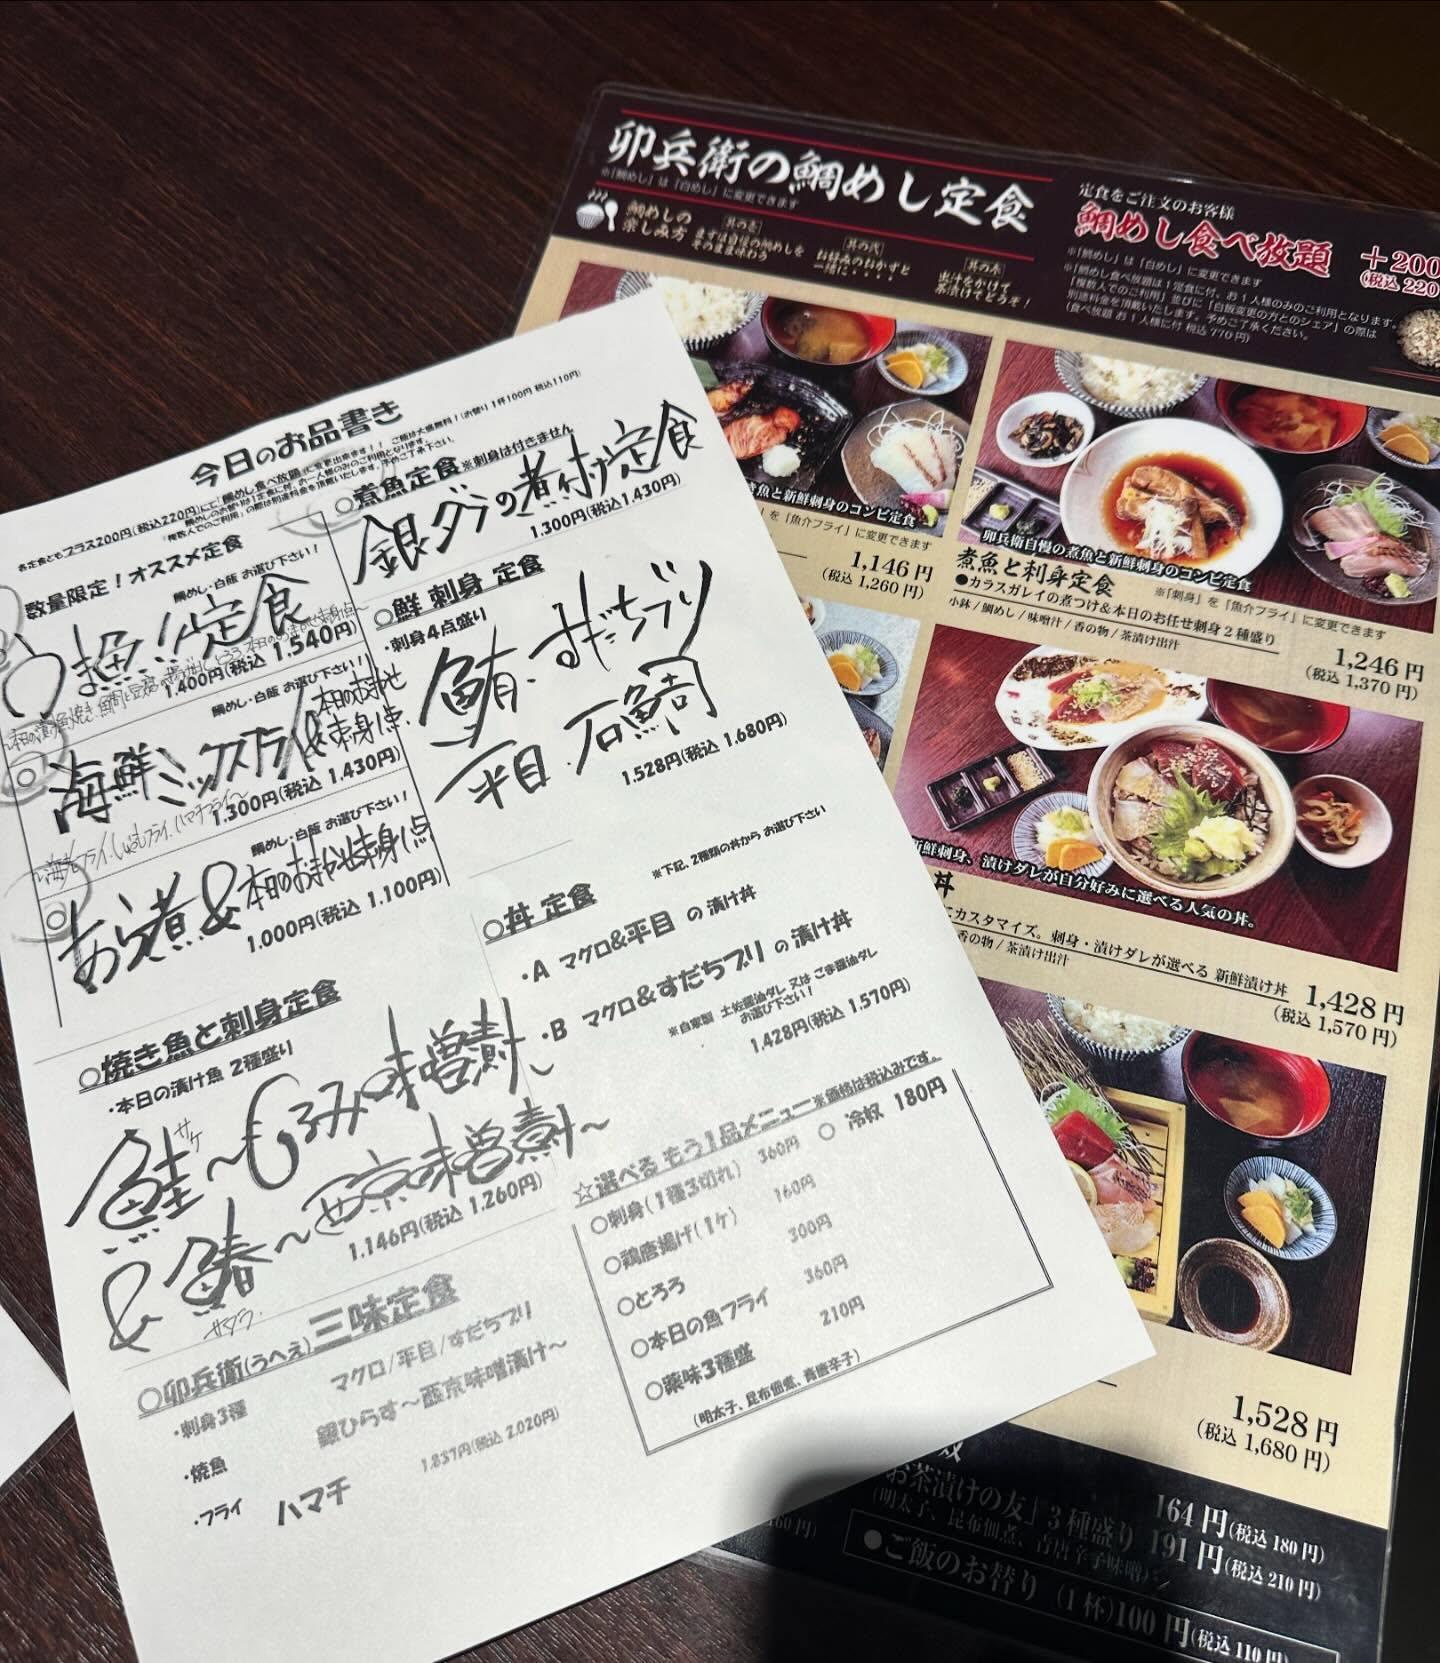 今日のお品書き
各定食ともプラス200円(税込220円)にて「鯛めし食べ放題」に変更出来ます！！ ご飯は大盛無料！(お替り1杯100円 税込110円)
数量限定！オススメ定食
鯛めし・白飯 お選び下さい！
うま魚!!定食
1.400円(税込 1.540円)
鯛めし・白飯 お選び下さい！
海鮮ミックスフライ&本日のおまかせ刺身1点
1.300円(税込 1.430円)
〜海老フライ、いかフライ、ハマチフライ〜
鯛めし・白飯 お選び下さい！
あら煮&本日のおまかせ刺身1点
1.000円(税込 1.100円)
○焼き魚と刺身定食
・本日の漬け魚 2種盛り
鮭〜もろみ味噌漬け
サケ
&鰆〜西京味噌漬け〜
サワラ
1.146円(税込 1.260円)
○卯兵衛(うへえ)三味定食
・刺身3種 マグロ/平目/すだちブリ
・焼魚 銀ひらす〜西京味噌漬け〜
・フライ ハマチ
1.837円(税込 2.020円)
○煮魚定食※刺身は付きません
銀ダラの煮付け定食
1.300円(税込 1.430円)
○鮮 刺身 定食
・刺身4点盛り
鮪・すだちブリ
平目・石鯛
1.528円(税込 1.680円)
※下記、2種類の丼から お選び下さい
○丼 定食
・A マグロ&平目 の 漬け丼
・B マグロ&すだちブリ の 漬け丼
※自家製 土佐醤油ダレ 又は ごま醤油ダレ
お選び下さい！
1.428円(税込 1.570円)
☆選べる もう1品メニュー※価格は税込みです。
○刺身(1種3切れ) 360円 ○ 冷奴 180円
○鶏唐揚げ(1ケ) 160円
○とろろ 300円
○本日の魚フライ 360円
○薬味3種盛 210円
(明太子、昆布佃煮、青唐辛子)
卯兵衛の鯛めし定食
※「鯛めし」は「白めし」に変更できます
鯛めしの楽しみ方
其の壱
まずは自慢の鯛めしをそのまま味わう
其の弐
お好みのおかずと一緒に・・・
其の参
出汁をかけて茶漬けでどうぞ！
定食をご注文のお客様
鯛めし食べ放題 +200
(税込 220
※「鯛めし」は「白めし」に変更できます
※「鯛めし食べ放題は1定食に付、お1人様のみのご利用となります。
「複数人でのご利用」並びに「白飯変更の方とのシェア」の際は
別途料金を頂戴いたします。予めご了承ください。
(食べ放題 お1人様に付 税込 770円)
焼魚と新鮮刺身のコンビ定食
を「魚介フライ」に変更できます
1,146円
(税込 1,260円)
卯兵衛自慢の煮魚と新鮮刺身のコンビ定食
煮魚と刺身定食
※「刺身」を「魚介フライ」に変更できます
●カラスガレイの煮つけ&本日のお任せ刺身2種盛り
小鉢/鯛めし/味噌汁/香の物/茶漬け出汁
1,246円
(税込 1,370円)
新鮮刺身、漬けダレが自分好みに選べる人気の丼。
丼
にカスタマイズ。刺身・漬けダレが選べる 新鮮漬け丼
香の物/茶漬け出汁
1,428円
(税込 1,570円)
1,528円
(税込 1,680円)
164円(税込 180円)
「お茶漬けの友」3種盛り 191円(税込 210円)
(明太子、昆布佃煮、青唐辛子味噌)
●ご飯のお替り (1杯)100円(税込 110円)